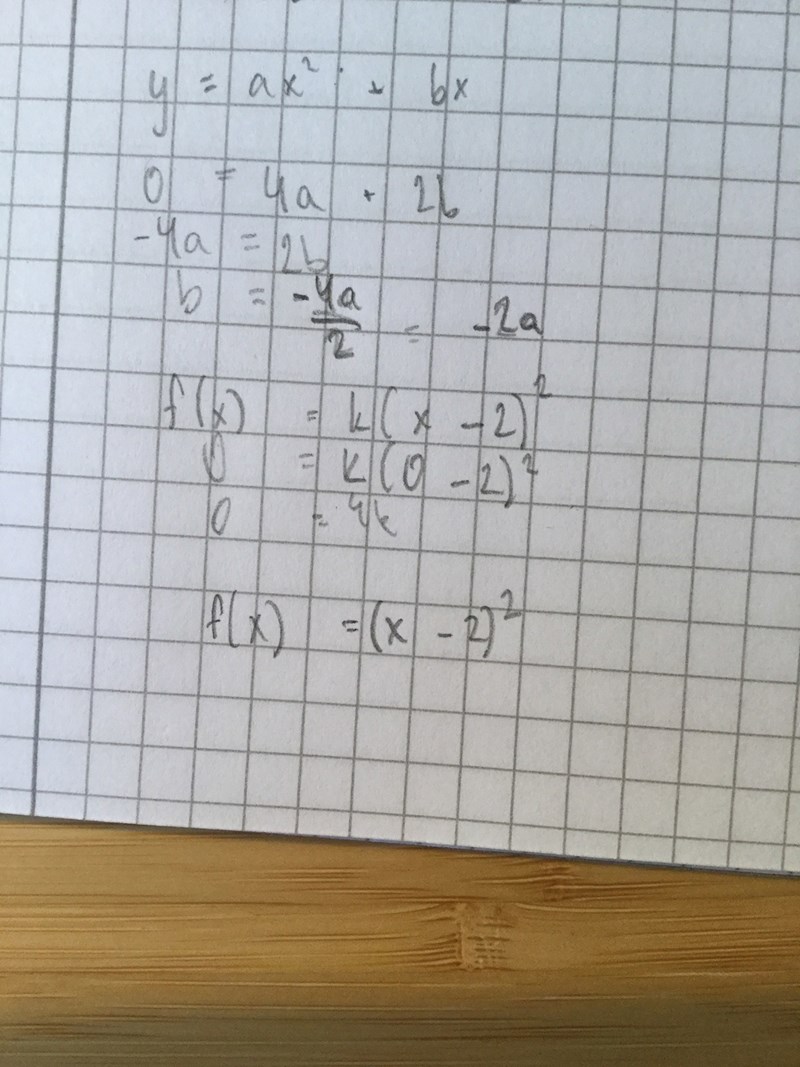 y = ax² + bx
0 = 4a + 2b
-4a = 2b
b = -4a/2 = -2a
f(x) = k(x - 2)²
0 = k(0 - 2)²
0 = 4k
f(x) = (x - 2)²